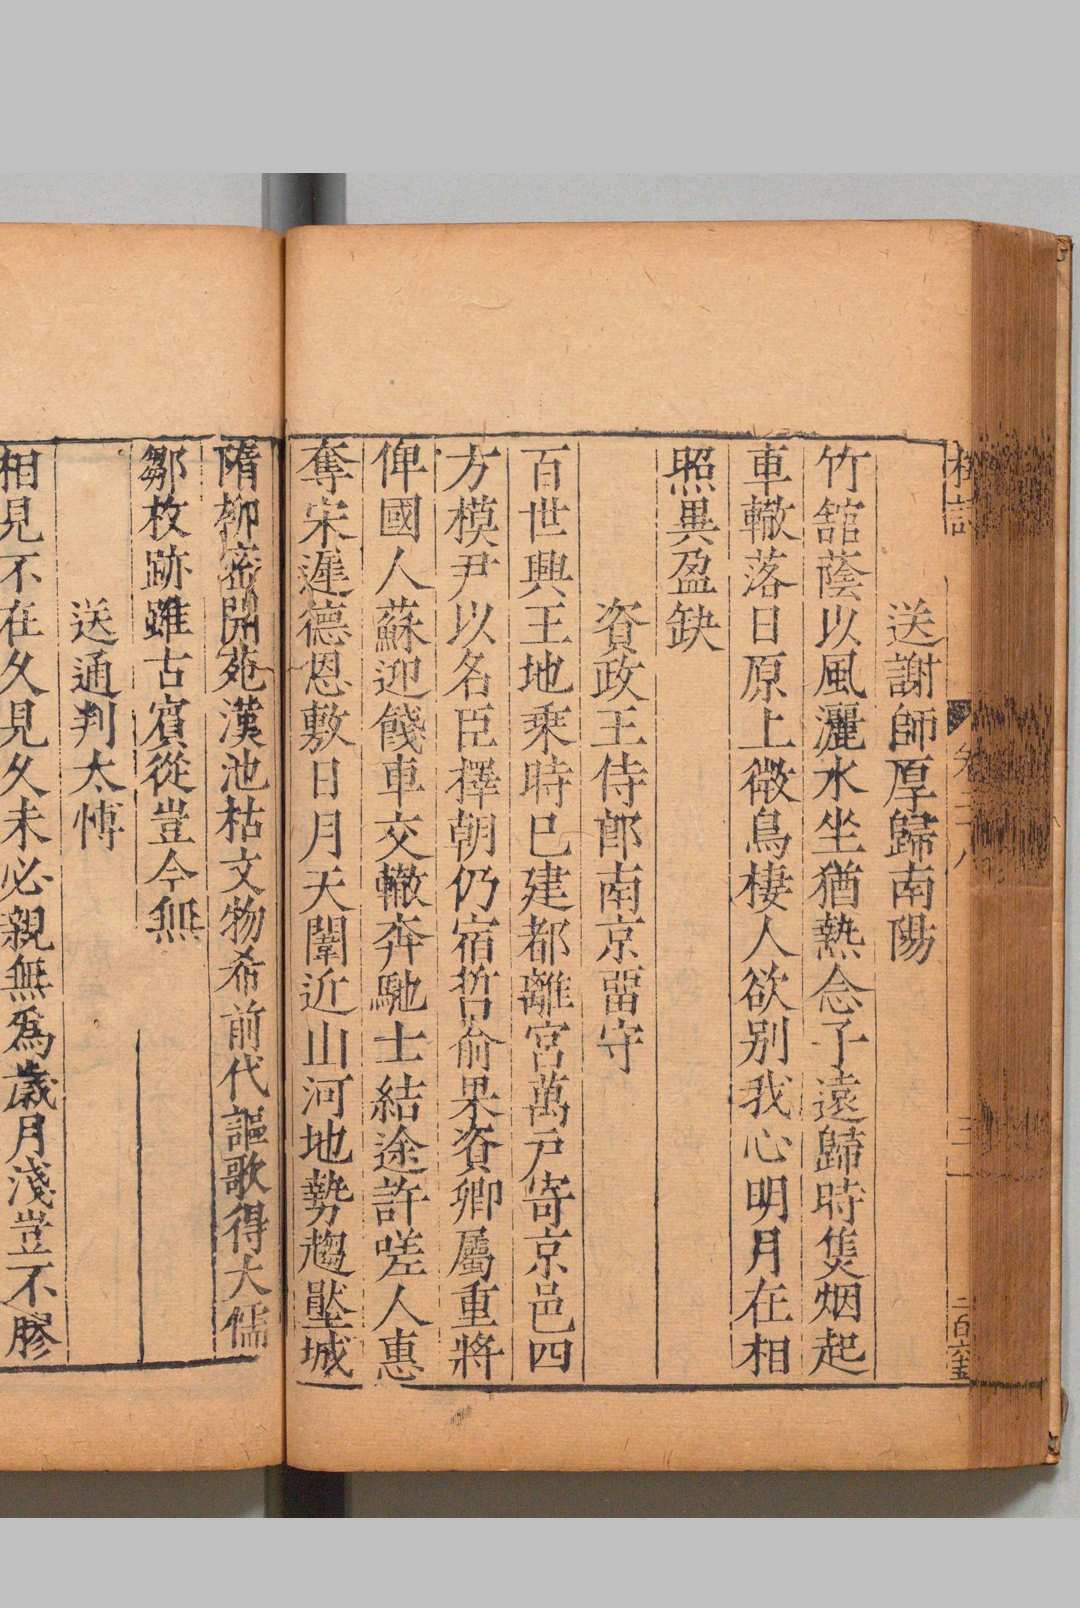 送謝師厚歸南陽
竹舘蔭以風灑水坐猶熱念子遠歸時隻烟起
車轍落日原上微鳥棲人欲别我心明月在相
照異盈缺
資政王侍郎南京留守
百世興王地乘時已建都離宮萬戸寄京邑四
方模尹以名臣擇朝仍宿哲俞果資卿屬重將
俾國人蘇迎餞車交轍奔馳士結途許嗟人惠
奪宋遲德恩敷日月天闈近山河地勢趨壓城
隋柳密開苑漢池枯文物希前代謳歌得大儒
鄒枚跡雖古賓從豈今無
送通判太愽
相見不在久見久未必親無爲歲月淺豈不膠
二百六五